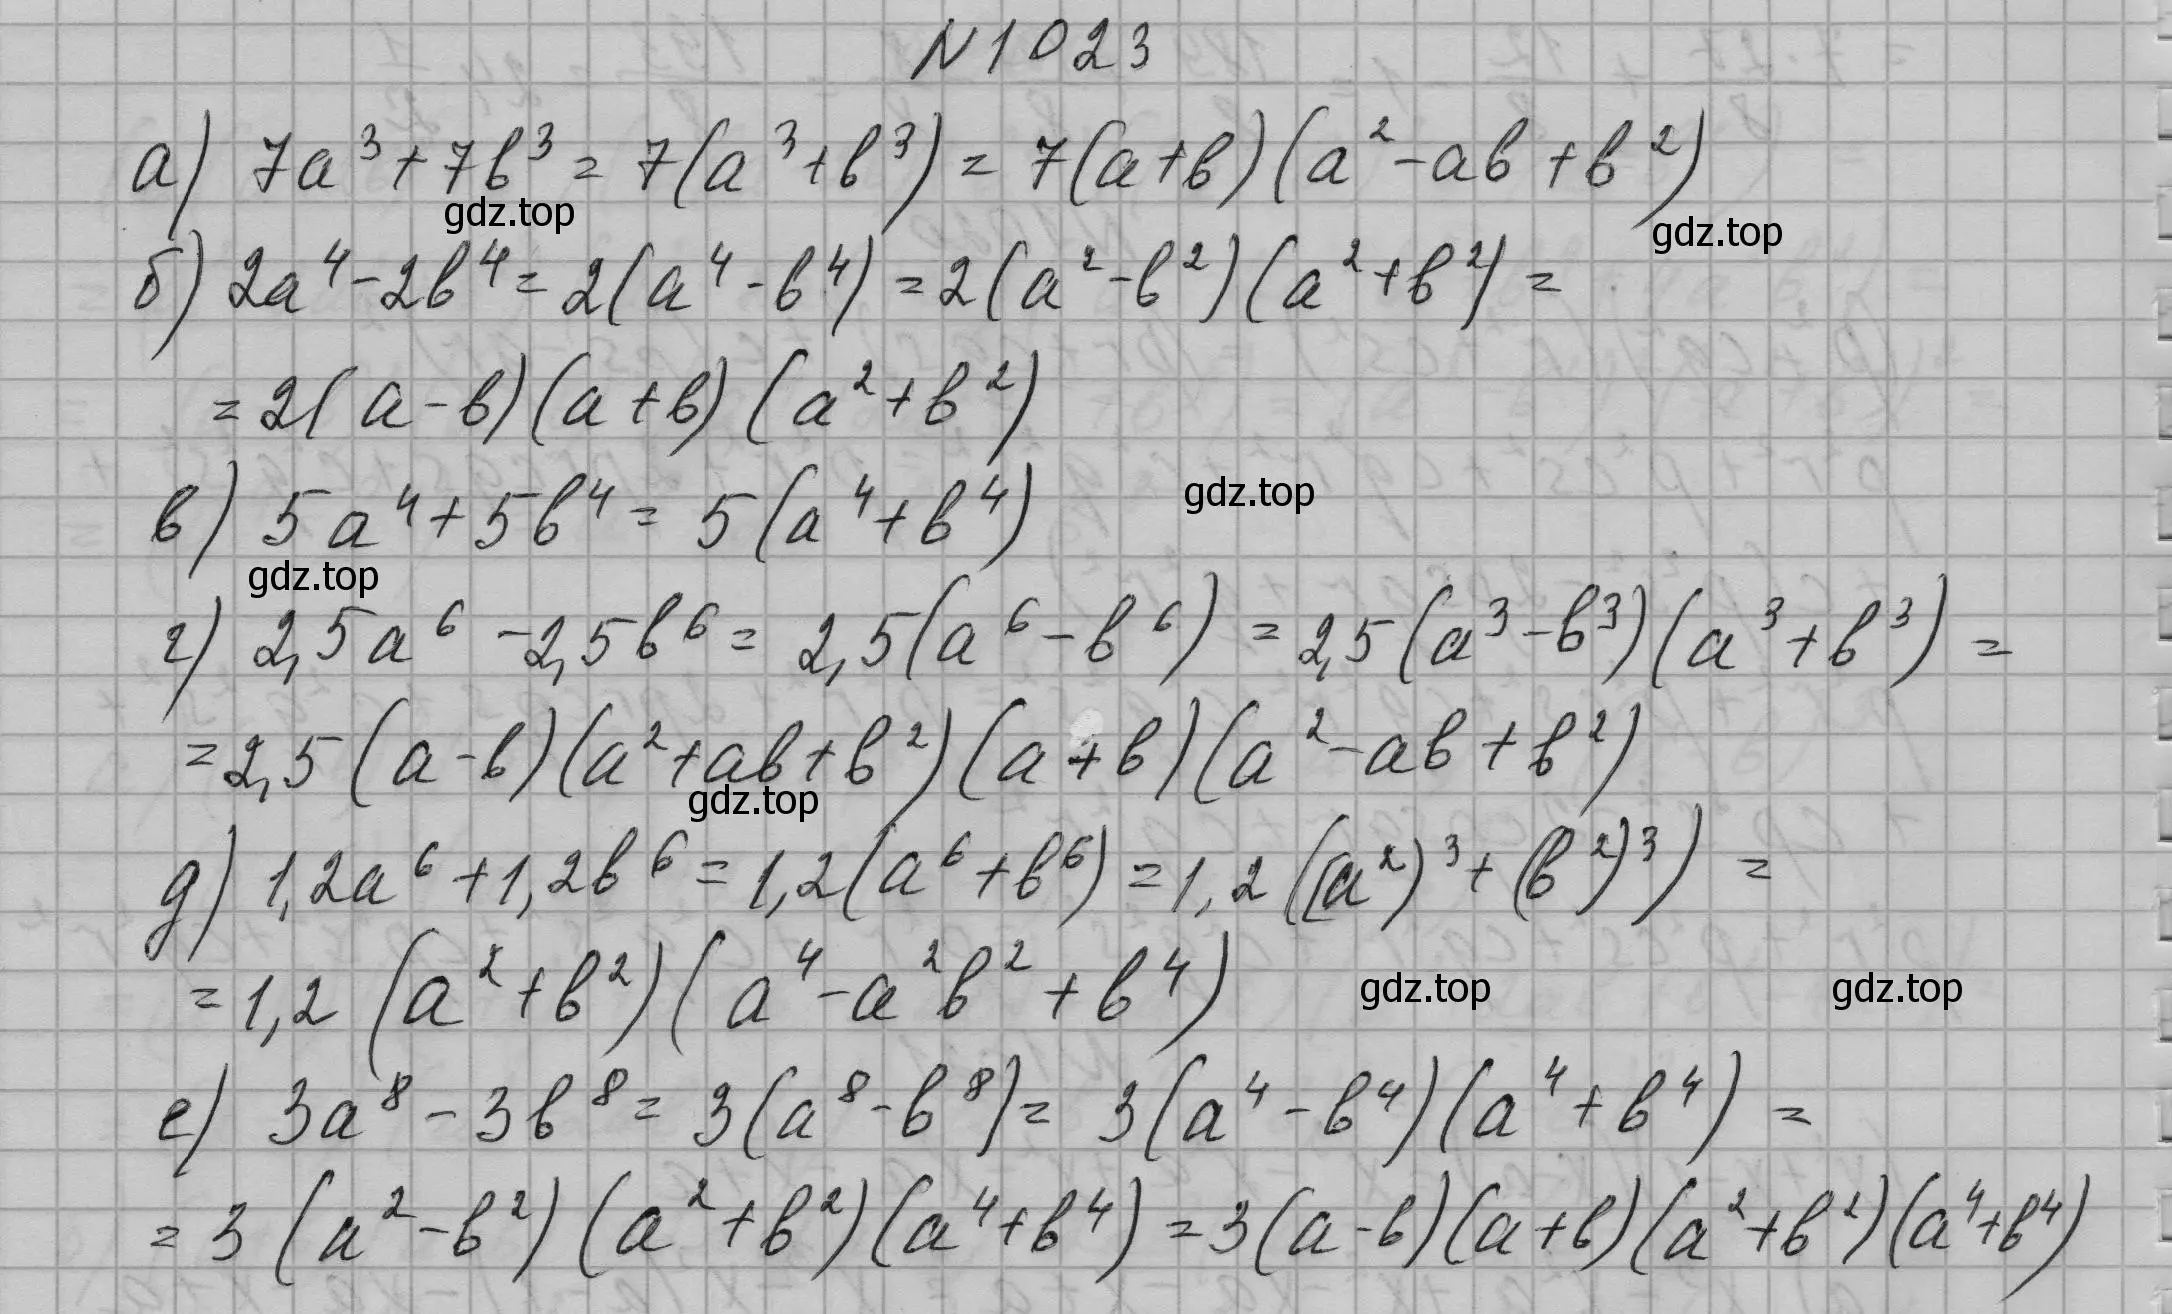 N1023
а) 7a³+7b³=7(a³+b³)=7(a+b)(a²-ab+b²)
gdz.top
gdz.top
б) 2a⁴-2b⁴=2(a⁴-b⁴)=2(a²-b²)(a²+b²)=
=2(a-b)(a+b)(a²+b²)
в) 5a⁴+5b⁴=5(a⁴+b⁴)
gdz.top
gdz.top
г) 2,5a⁶-2,5b⁶=2,5(a⁶-b⁶)=2,5(a³-b³)(a³+b³)=
=2,5(a-b)(a²+ab+b²)(a+b)(a²-ab+b²)
gdz.top
д) 1,2a⁶+1,2b⁶=1,2(a⁶+b⁶)=1,2((a²)³+(b²)³)=
=1,2(a²+b²)(a⁴-a²b²+b⁴)
gdz.top
gdz.top
е) 3a⁸-3b⁸=3(a⁸-b⁸)=3(a⁴-b⁴)(a⁴+b⁴)=
=3(a²-b²)(a²+b²)(a⁴+b⁴)=3(a-b)(a+b)(a²+b²)(a⁴+b⁴)